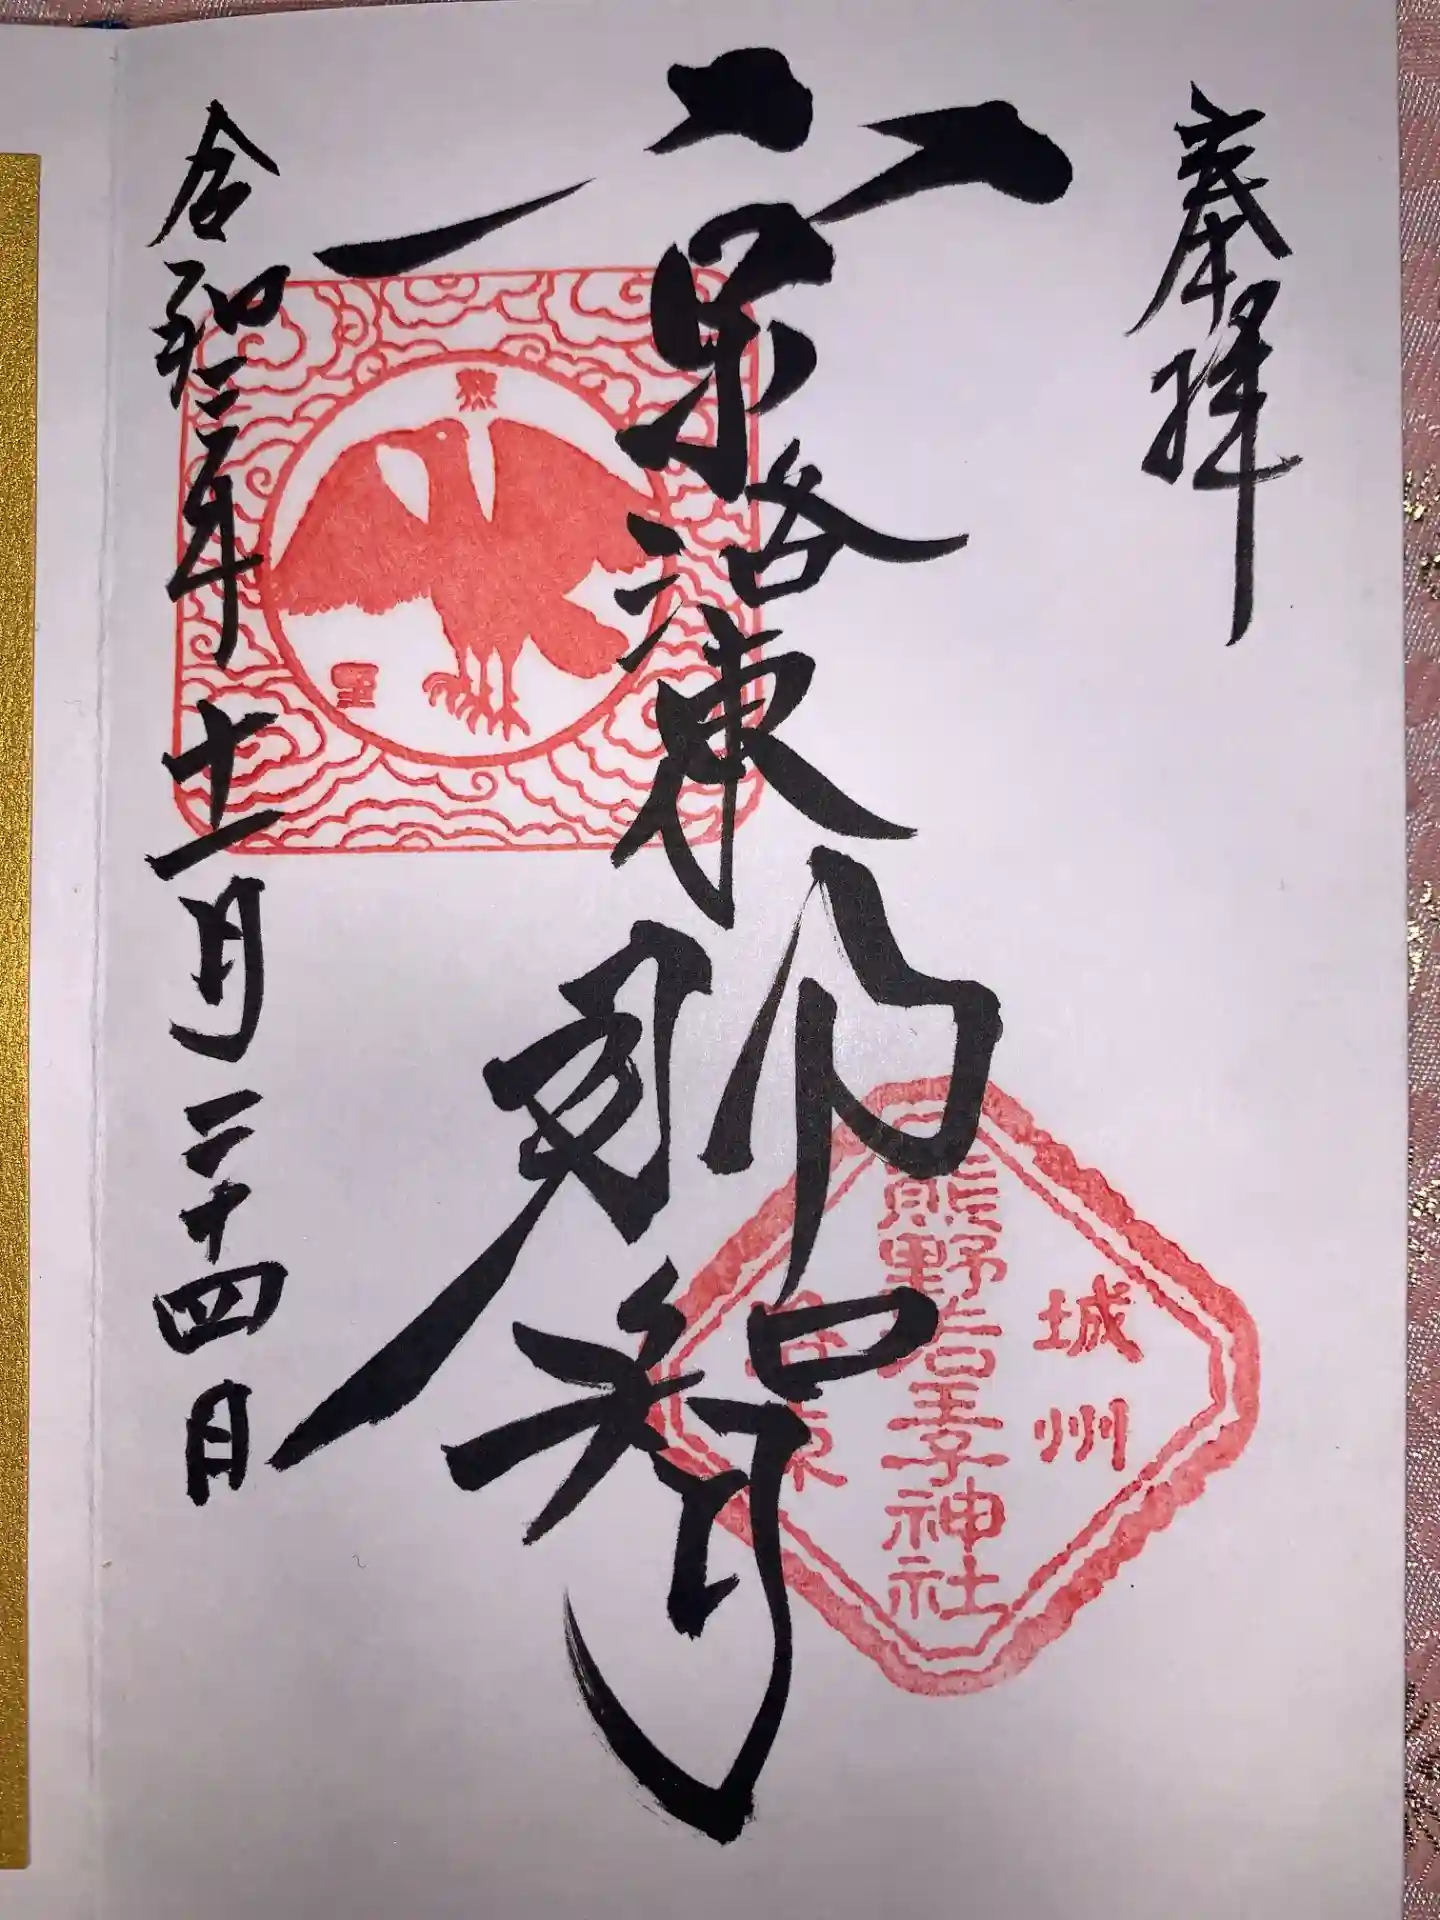 奉拝
京洛東那智
令和二年十一月二十四日
城州
熊野若王子神社
洛東